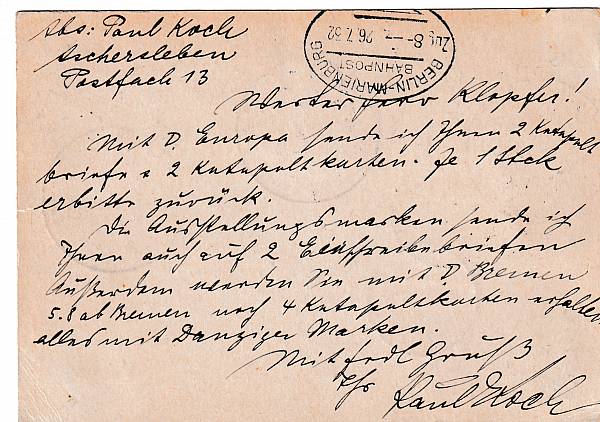 Abs: Paul Koch
Aschersleben
Postfach 13
BERLIN-MARIENBURG
BAHNPOST
Zug 8
26.7.32
Werter Herr Klopfer!
Mit D. Europa sende ich Ihnen 2 Katapult
briefe & 2 Katapultkarten. Je 1 Stck
erbitte zurück.
Die Ausstellungsmarken sende ich
Ihnen auch auf 2 Einschreibebriefen
Außerdem werden Sie mit D. Bremen
5.8 ab Bremen noch 4 Katapultkarten erhalten
alles mit Danziger Marken.
Mit frdl Gruß
Ihr
Paul Koch